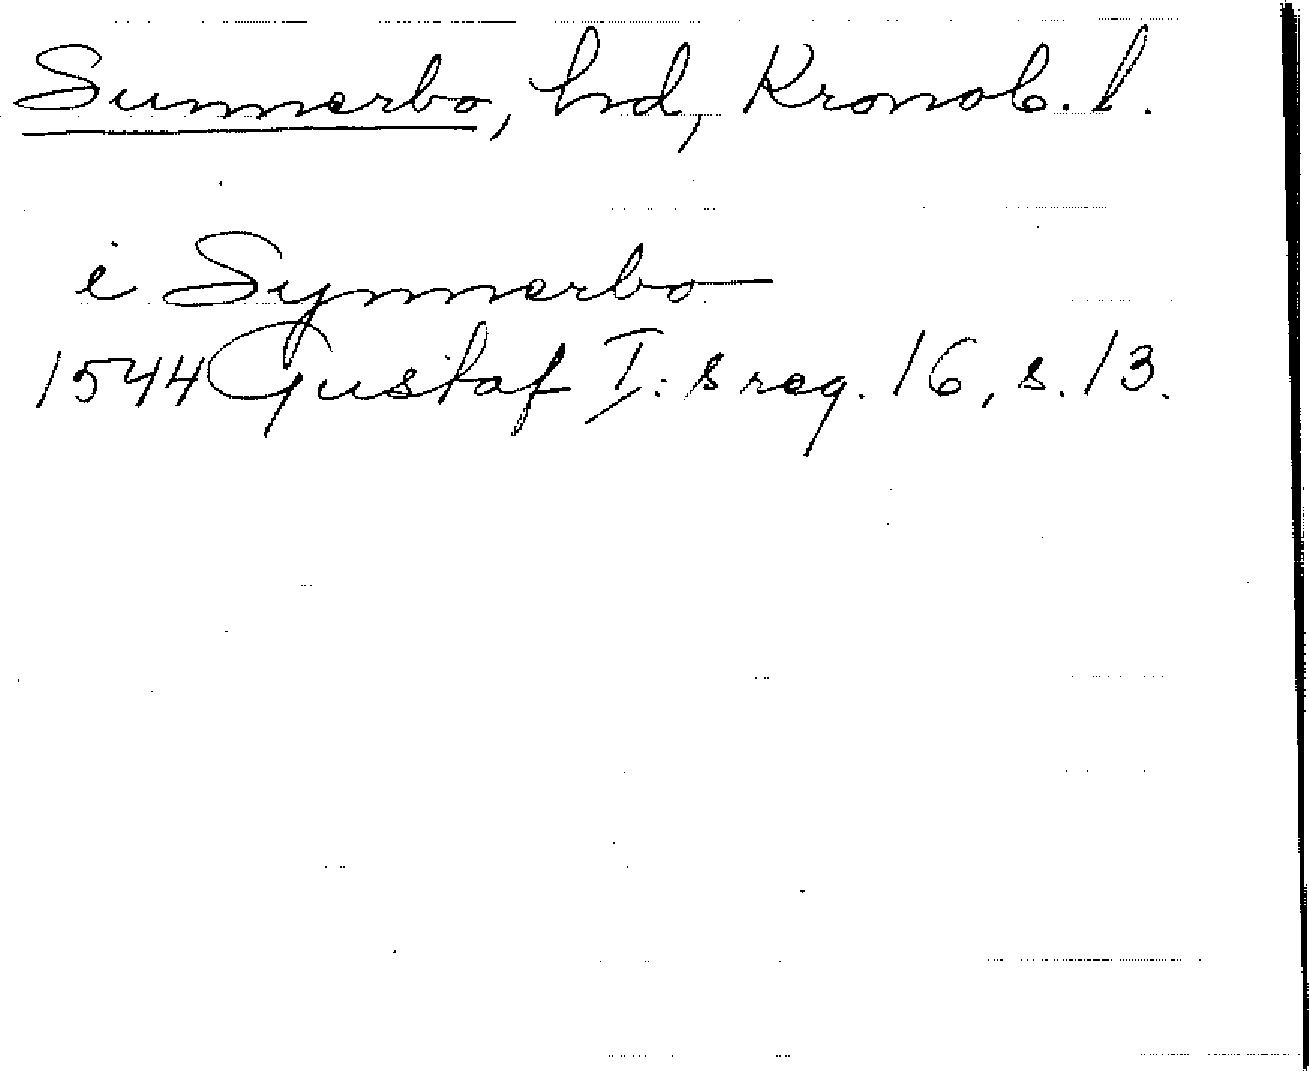 Sunnerbo, hd, Kronob. l.
i Synnerbo
1544 Gustaf I:s reg. 16, s. 13.